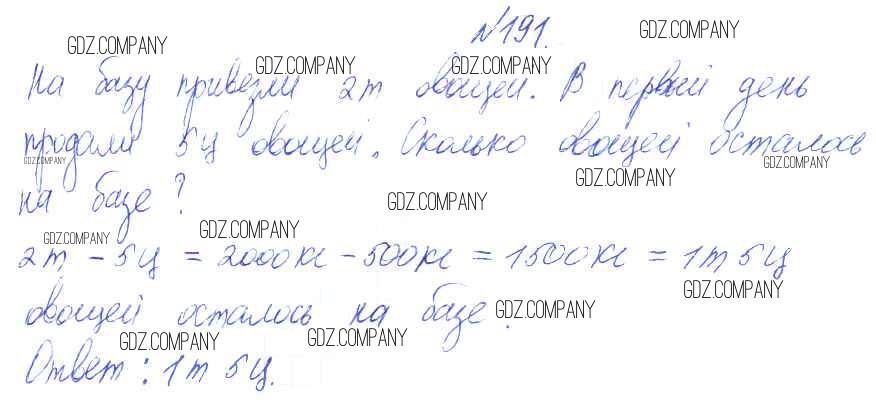 №191.
На базу привезли 2т овощей. В первый день
продали 5ц овощей. Сколько овощей осталось
на базе?
2т – 5ц = 2000кг – 500кг = 1500кг = 1т 5ц
овощей осталось на базе.
Ответ: 1т 5ц.
GDZ.COMPANY
GDZ.COMPANY
GDZ.COMPANY
GDZ.COMPANY
GDZ.COMPANY
GDZ.COMPANY
GDZ.COMPANY
GDZ.COMPANY
GDZ.COMPANY
GDZ.COMPANY
GDZ.COMPANY
GDZ.COMPANY
GDZ.COMPANY
GDZ.COMPANY